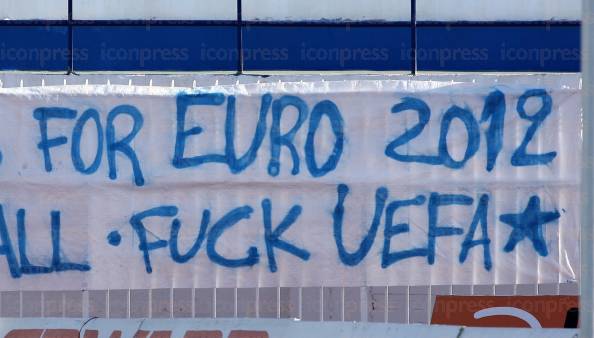 iconpress iconpress iconpress iconpress iconpress iconpress
FOR EURO 2012
ALL · FUCK UEFA ★